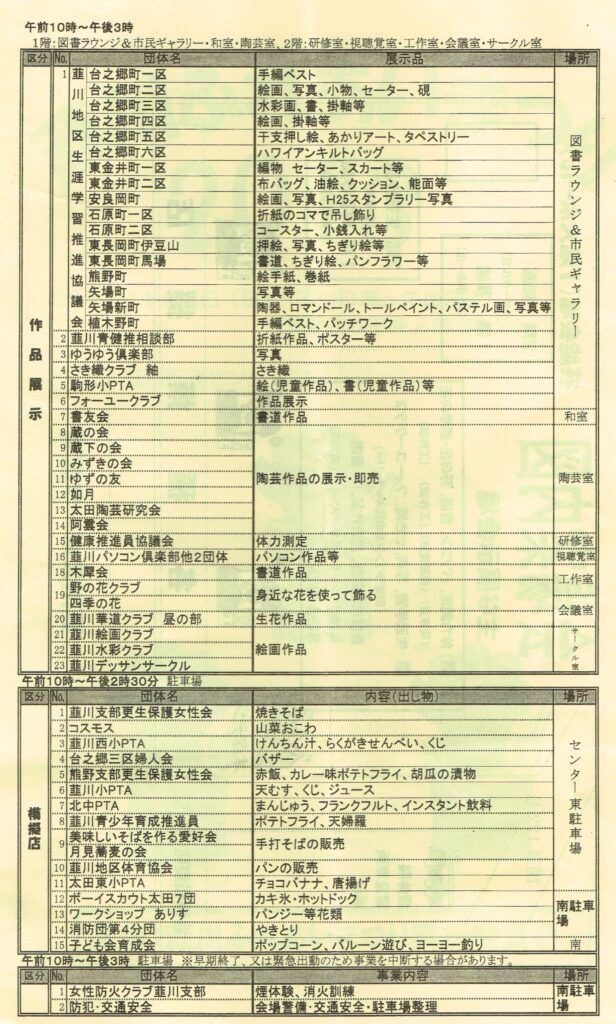 午前10時～午後3時
1階:図書ラウンジ＆市民ギャラリー・和室・陶芸室、2階:研修室・視聴覚室・工作室・会議室・サークル室
区分 No. 団体名 展示品 場所
作品展示
1 韮川地区生涯学習推進協議会
台之郷町一区 手編ベスト
台之郷町二区 絵画、写真、小物、セーター、硯
台之郷町三区 水彩画、書、掛軸等
台之郷町四区 絵画、掛軸等
台之郷町五区 干支押し絵、あかりアート、タペストリー
台之郷町六区 ハワイアンキルトバッグ
東金井町一区 編物 セーター、スカート等
東金井町二区 布バッグ、油絵、クッション、能面等
安良岡町 絵画、写真、H25スタンプラリー写真
石原町一区 折紙のコマで吊し飾り
石原町二区 コースター、小銭入れ等
東長岡町伊豆山 押絵、写真、ちぎり絵等
東長岡町馬場 書道、ちぎり絵、パンフラワー等
熊野町 絵手紙、巻紙
矢場町 写真等
矢場新町 陶器、ロマンドール、トールペイント、パステル画、写真等
植木野町 手編ベスト、パッチワーク
2 韮川青健推相談部 折紙作品、ポスター等
3 ゆうゆう倶楽部 写真
4 さき織クラブ 紬 さき織
5 駒形小PTA 絵(児童作品)、書(児童作品)等
6 フォーユークラブ 作品展示
図書ラウンジ＆市民ギャラリー
7 書友会 書道作品 和室
8 蔵の会
9 蔵下の会
10 みずきの会
11 ゆずの友 陶芸作品の展示・即売 陶芸室
12 如月
13 太田陶芸研究会
14 阿雲会
15 健康推進員協議会 体力測定 研修室
16 韮川パソコン倶楽部他2団体 パソコン作品等 視聴覚室
18 木犀会 書道作品 工作室
19 野の花クラブ 身近な花を使って飾る
四季の花 会議室
20 韮川華道クラブ 昼の部 生花作品
21 韮川絵画クラブ
22 韮川水彩クラブ 絵画作品 サークル室
23 韮川デッサンサークル
午前10時～午後2時30分 駐車場
区分 No. 団体名 内容(出し物) 場所
模擬店
1 韮川支部更生保護女性会 焼きそば
2 コスモス 山菜おこわ
3 韮川西小PTA けんちん汁、らくがきせんべい、くじ
4 台之郷三区婦人会 バザー
5 熊野支部更生保護女性会 赤飯、カレー味ポテトフライ、胡瓜の漬物
6 韮川小PTA 天むす、くじ、ジュース
7 北中PTA まんじゅう、フランクフルト、インスタント飲料
8 韮川青少年育成推進員 ポテトフライ、天婦羅
9 美味しいそばを作る愛好会 手打そばの販売
月見蕎麦の会
10 韮川地区体育協会 パンの販売
11 太田東小PTA チョコバナナ、唐揚げ
センター東駐車場
12 ボーイスカウト太田7団 カキ氷・ホットドック
13 ワークショップ ありす パンジー等花類
14 消防団第4分団 やきとり
南駐車場
15 子ども会育成会 ポップコーン、バルーン遊び、ヨーヨー釣り 南
午前10時～午後3時 駐車場 ※早期終了、又は緊急出動のため事業を中断する場合があります。
区分 No. 団体名 事業内容 場所
1 女性防火クラブ韮川支部 煙体験、消火訓練
2 防犯・交通安全 会場警備・交通安全・駐車場整理
南駐車場